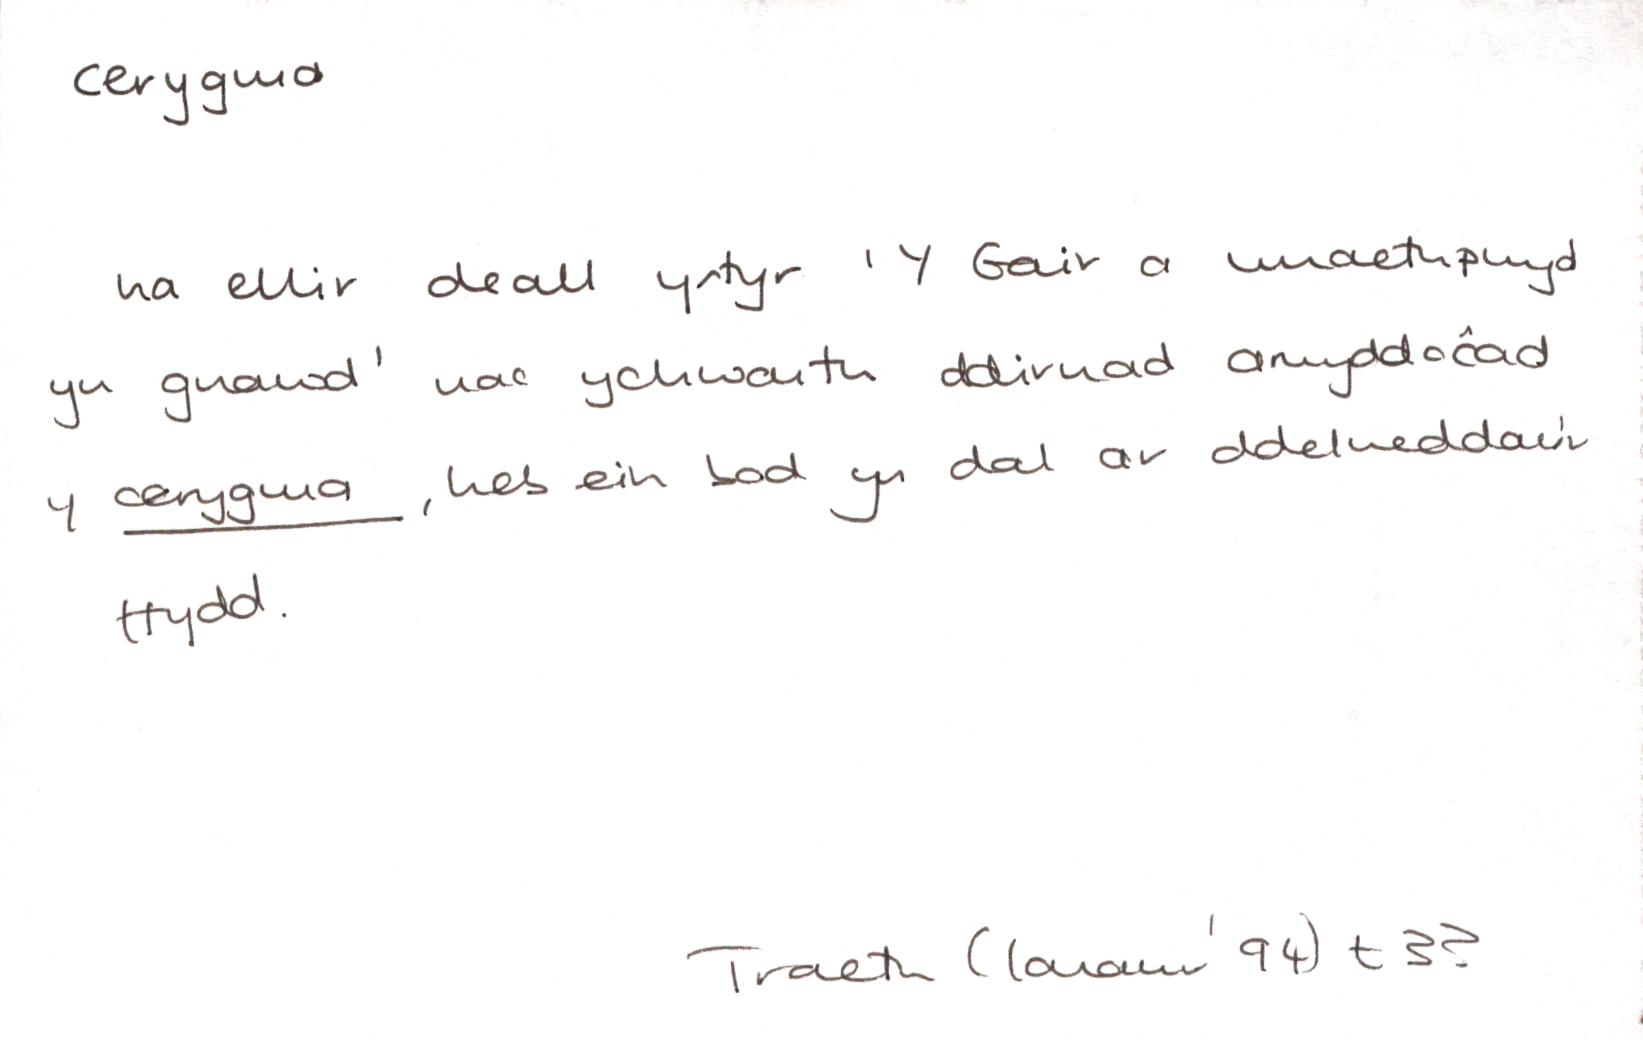 cerygma
na ellir deall ystyr 'Y Gair a wnaethpwyd
yn gnawd' nac ychwaith ddirnad arwyddocâd
y cerygma, heb ein bod yn dal ar ddelweddau'r
ffydd.
Traeth (Ionawr '94) t 3?